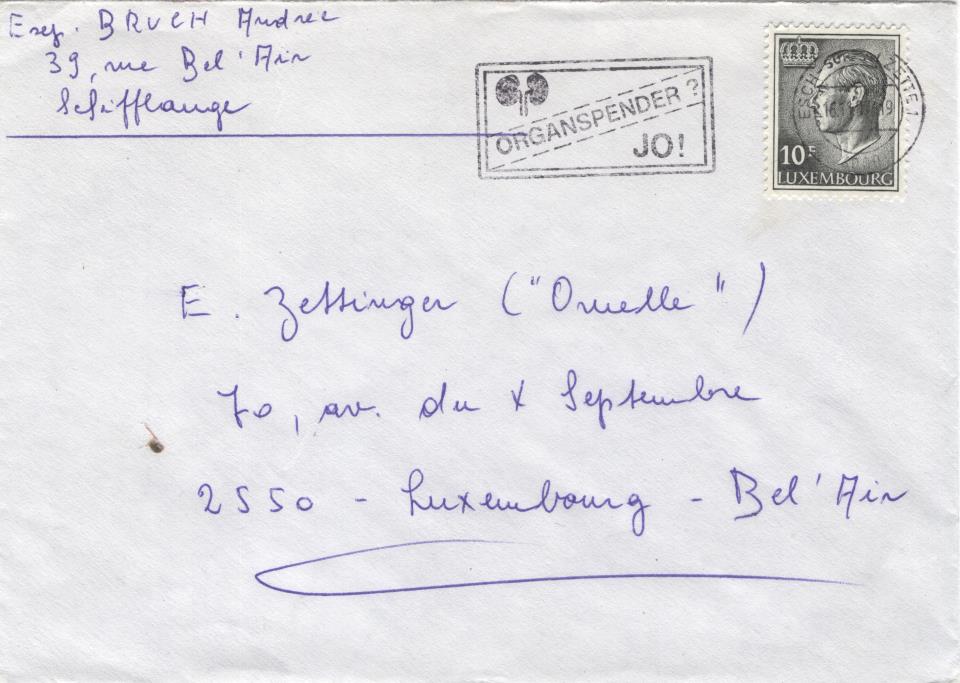 Exp. BRUCH Andrée
39, rue Bel'Air
Schifflange
ORGANSPENDER ?
JO!
ESCH-SUR-ALZETTE 1
10F
LUXEMBOURG
E. Zettinger ("Ornelle")
70, av. du X Septembre
2550 - Luxembourg - Bel'Air